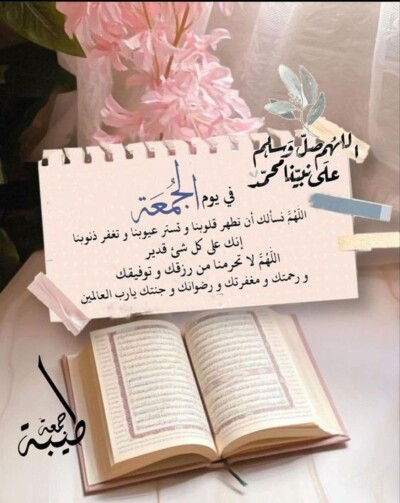 اللهم صل وسلم
على نبينا محمد
في يوم الجمعة
اللهم نسألك أن تطهر قلوبنا و تستر عيوبنا و تغفر ذنوبنا
إنك على كل شئ قدير
اللهم لا تحرمنا من رزقك و توفيقك
و رحمتك و مغفرتك و رضوانك و جنتك يارب العالمين
جمعة
طيبة